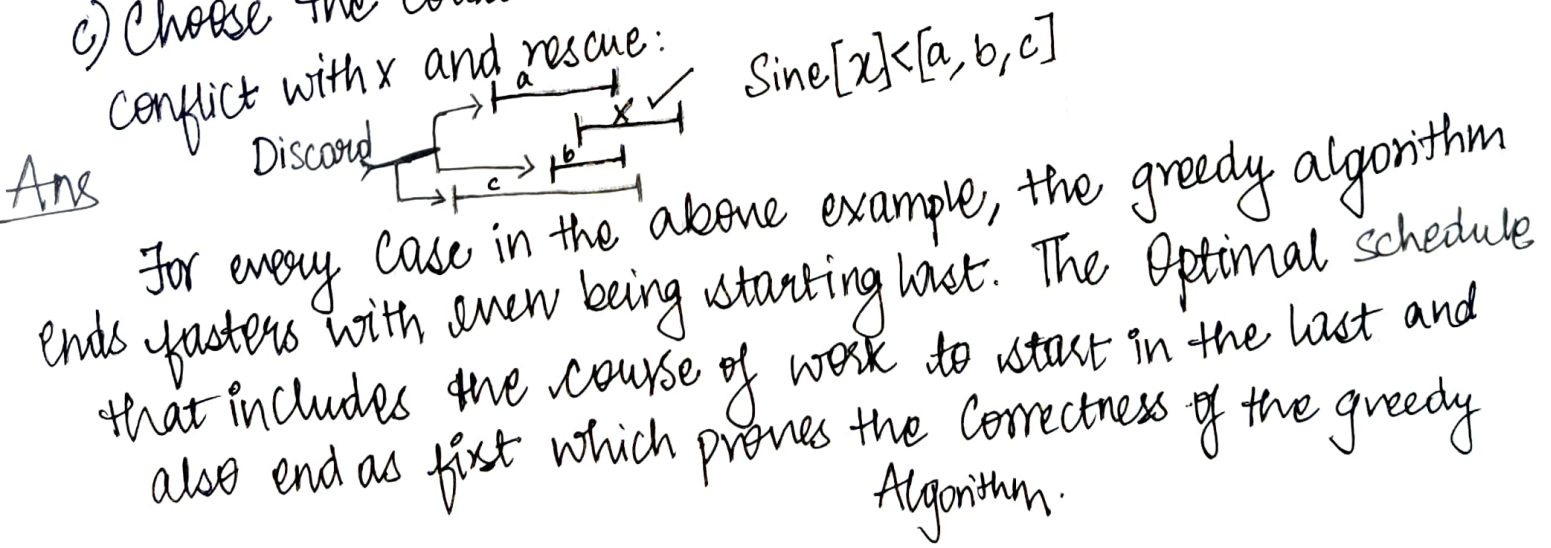 c) Choose the
conflict with x and rescue:
Sine[x]<[a, b, c]
a
x
Discard
b
c
Ans
For every case in the above example, the greedy algorithm
ends fasters with even being starting last. The Optimal schedule
that includes the course of work to start in the last and
also end as first which proves the correctness of the greedy
Algorithm.